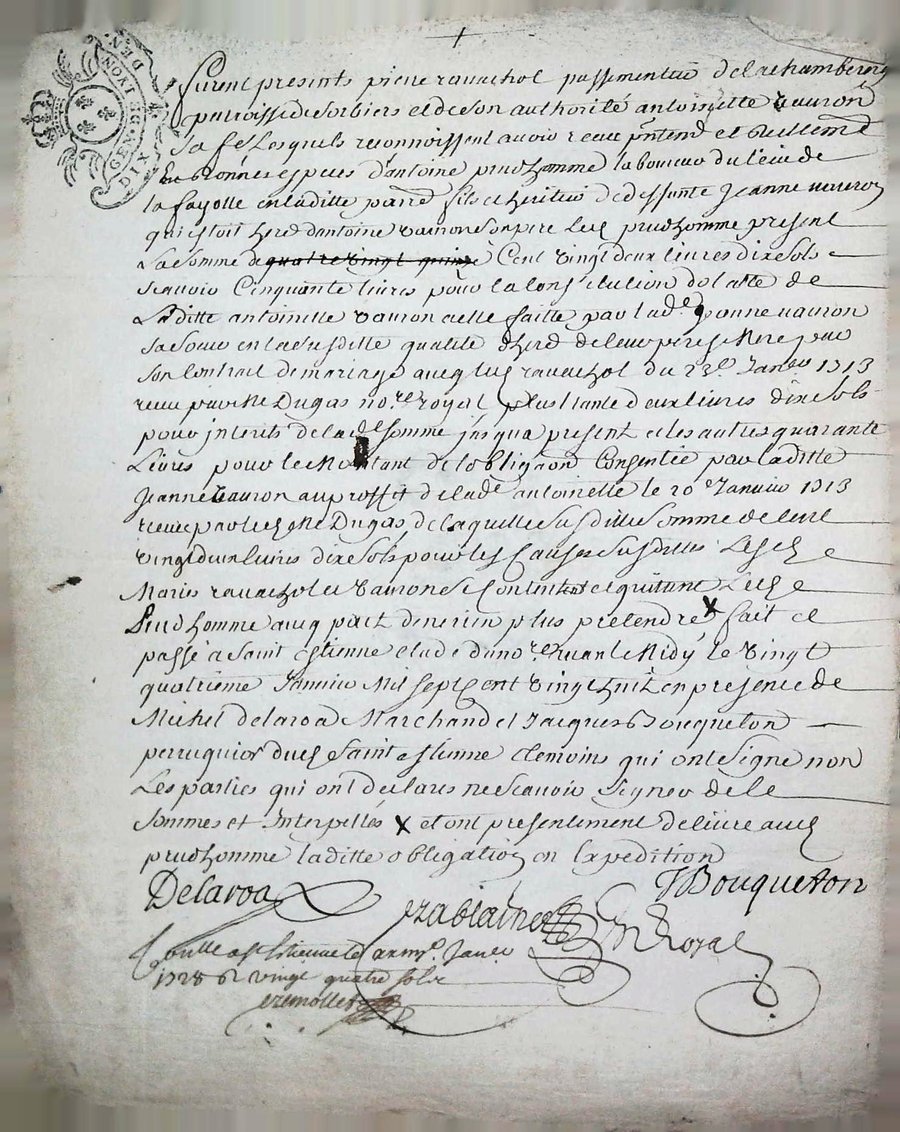 GEN. DE LYON
DIX DEN.
furent presents pierre ravachol passementier de la chamberri
parroisse de Sorbiers et de Son authorité antoinette vauron
Sa fe Lesquels reconnoissent avoir receu pntemt et Reellemt
En bonnes especes d'antoine prudhomme laboureur du lieu de
la fayolle en laditte parr fils et heritier de deffunte Jeanne vauron
qui estoit hered d'antoine vauron Son pere Led prudhomme present
La Somme de quatre vingt quinze Cent vingt deux livres dix Sols
Scavoir Cinquante livres pour la constitution dotalle de
Laditte antoinette vauron a elle faitte par lade Jeanne vauron
Sa Soeur en la Susditte qualité d'hered de leur pere & Mere par
Son Contrat de mariage avecq led ravachol du 23e Janvr 1713
receu par Me Dugas nore Royal plus trante deux livres dix Sols
pour interets de lade Somme jusqua present et les autres quarante
Livres pour le Montant de l'obligaon Consentie par laditte
Jeanne vauron au proffit de lade antoinette le 20e Janvier 1713
receue par led Me Dugas, de laquelle Susditte Somme de Cent
vingt deux livres dix Sols pour les Causes Susdittes Lesd
Maries ravachol et vauron Se Contentent et quittent Led
Prudhomme avecq pact de n'en rien plus pretendre x fait et
passé a Saint Estienne etude du nore avant Midy le vingt
quatrieme Janvier Mil Sept Cent vingt huit en presence de
Michel Delaroa Marchand et Jacques Bouqueton
perruquier dud Saint estienne temoins qui ont Signe non
Les parties qui ont declares ne Scavoir Signer de ce
Sommes et Interpellés x et ont presentement delivre aud
prudhomme laditte obligation en Expedition
Delaroa J Bouqueton
Nre Royal
Conllé a St Etienne le Janer
1728 R vingt quatre sols